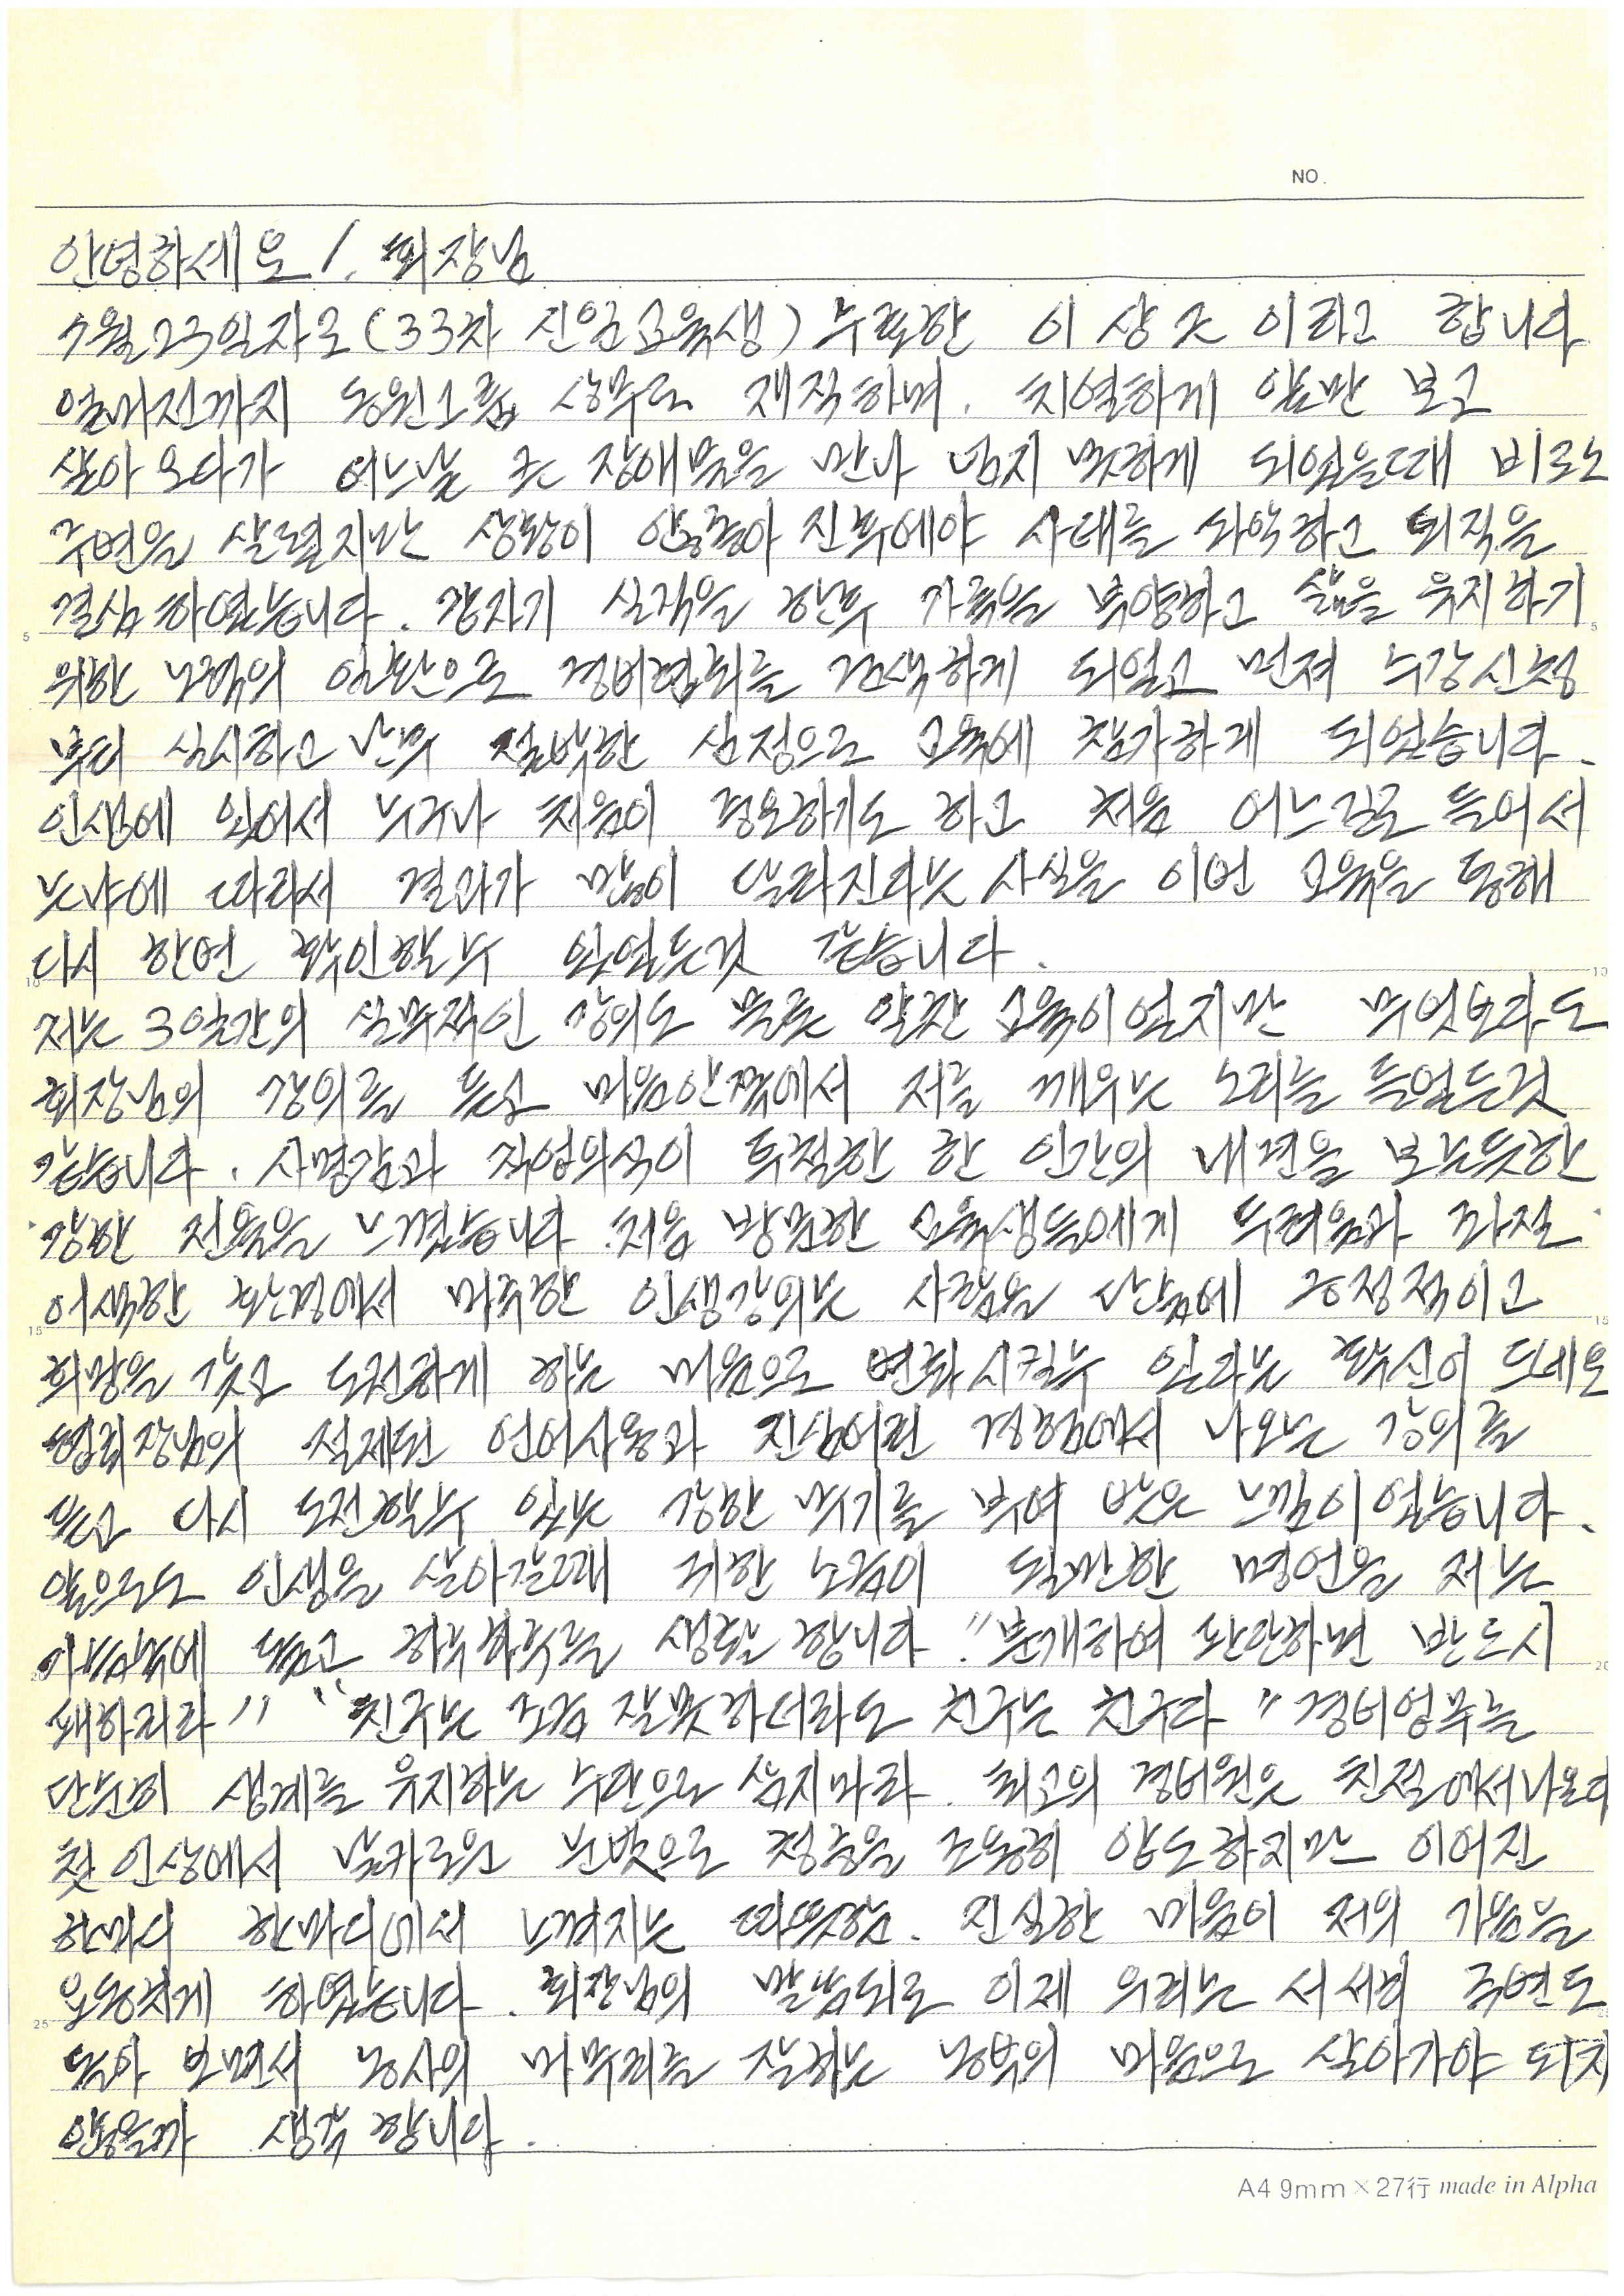 NO.
안녕하세요! 회장님
7월23일자로(33차 신임교육생) 수료한 이상조 이라고 합니다
얼마전까지 동원그룹 상무로 재직하며. 치열하게 앞만 보고
살아 오다가 어느날 큰 장애물을 만나 넘지 못하게 되었을때 비로소
주변을 살폈지만 상황이 안좋아 진후에야 사태를 파악하고 퇴직을
결심 하였습니다. 갑자기 실직을 한후 가족을 부양하고 삶을 유지하기
위한 노력의 일환으로 경비협회를 검색하게 되었고 먼저 수강신청
부터 실시하고 난후 절박한 심정으로 교육에 참가하게 되었습니다.
인생에 있어서 누구나 처음이 중요하기도 하고 처음 어느길로 들어서
느냐에 따라서 결과가 많이 달라진다는 사실을 이번 교육을 통해
다시 한번 확인할수 있었는것 같습니다.
저는 3일간의 실무적인 강의도 물론 알찬 교육이었지만 무엇보다도
회장님의 강의를 듣고 마음안쪽에서 저를 깨우는 소리를 들었는것
같습니다. 사명감과 직업의식이 투철한 한 인간의 내면을 보는듯한
강한 전율을 느꼈습니다. 처음 방문한 교육생들에게 두려움과 좌절
어색한 환경에서 마주한 인생강의는 사람을 단숨에 긍정적이고
희망을 갖고 도전하게 하는 마음으로 변화시킬수 있다는 확신이 드네요
회장님의 절제된 언어사용과 진심어린 경험에서 나오는 강의를
듣고 다시 도전할수 있는 강한 무기를 부여 받은 느낌이었습니다.
앞으로도 인생을 살아갈때 귀한 소금이 될만한 명언을 저는
가슴속에 품고 하루하루를 생활 합니다. "분개하여 판단하면 반드시
패하리라" "친구는 조금 잘못하더라도 친구는 친구다" 경비업무를
단순히 생계를 유지하는 수단으로 삼지마라. 최고의 경비원은 친절에서나온다
첫 인상에서 날카로운 눈빛으로 청중을 조용히 압도하지만 이어진
한마디 한마디에서 느껴지는 따뜻함. 진실한 마음이 저의 가슴을
요동치게 하였습니다. 회장님의 말씀되로 이제 우리는 서서히 주변도
돌아 보면서 농사의 마무리를 잘하는 농부의 마음으로 살아가야 되지
않을까 생각 합니다.
A4 9mm×27行 made in Alpha
5
5
10
10
15
15
20
20
25